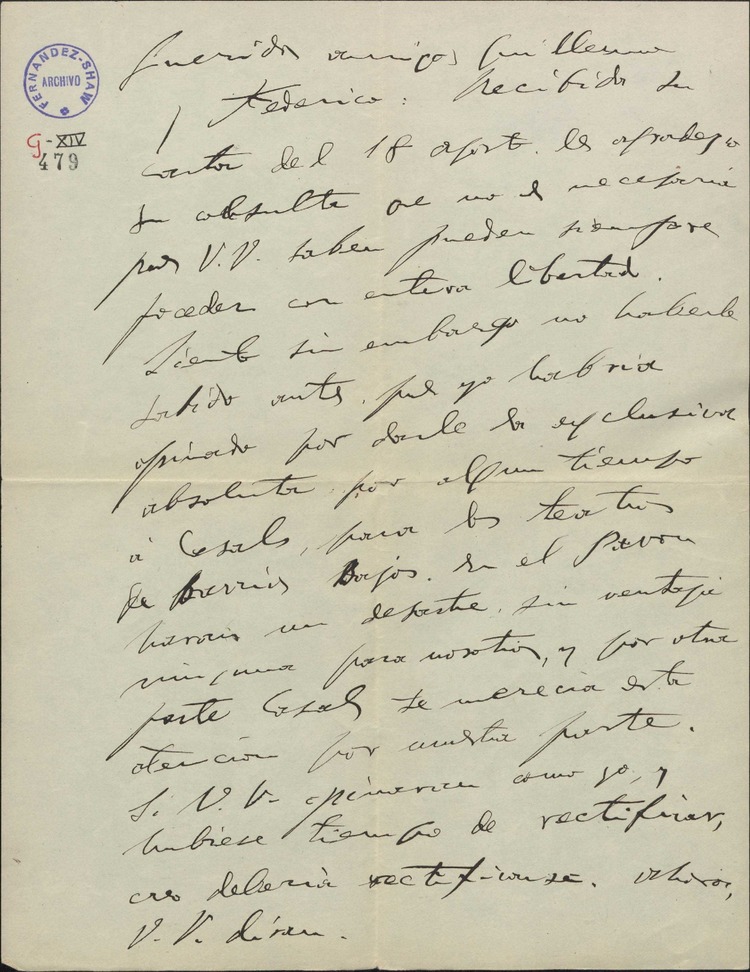 FERNANDEZ-SHAW
ARCHIVO
G-XIV
479
Queridos amigos Guillermo
y Federico: Recibida su
carta del 18 agost. les agradezco
su consulta que no es necesaria
pues V.V. saben pueden siempre
proceder con entera libertad.
Siento sin embargo no haberle
sabido antes, pues yo habria
opinado por darle la exclusiva
absoluta por algun tiempo
á Casals, para los teatros
de barrios bajos. En el Pavon
haran un desastre, sin ventaja
ninguna para nosotros, y por otra
parte Casals se merecia esta
atencion por nuestra parte.
Si V.V. opinaran como yo, y
hubiese tiempo de rectificar,
creo deberia rectificarse. Ahora,
V.V. diran.